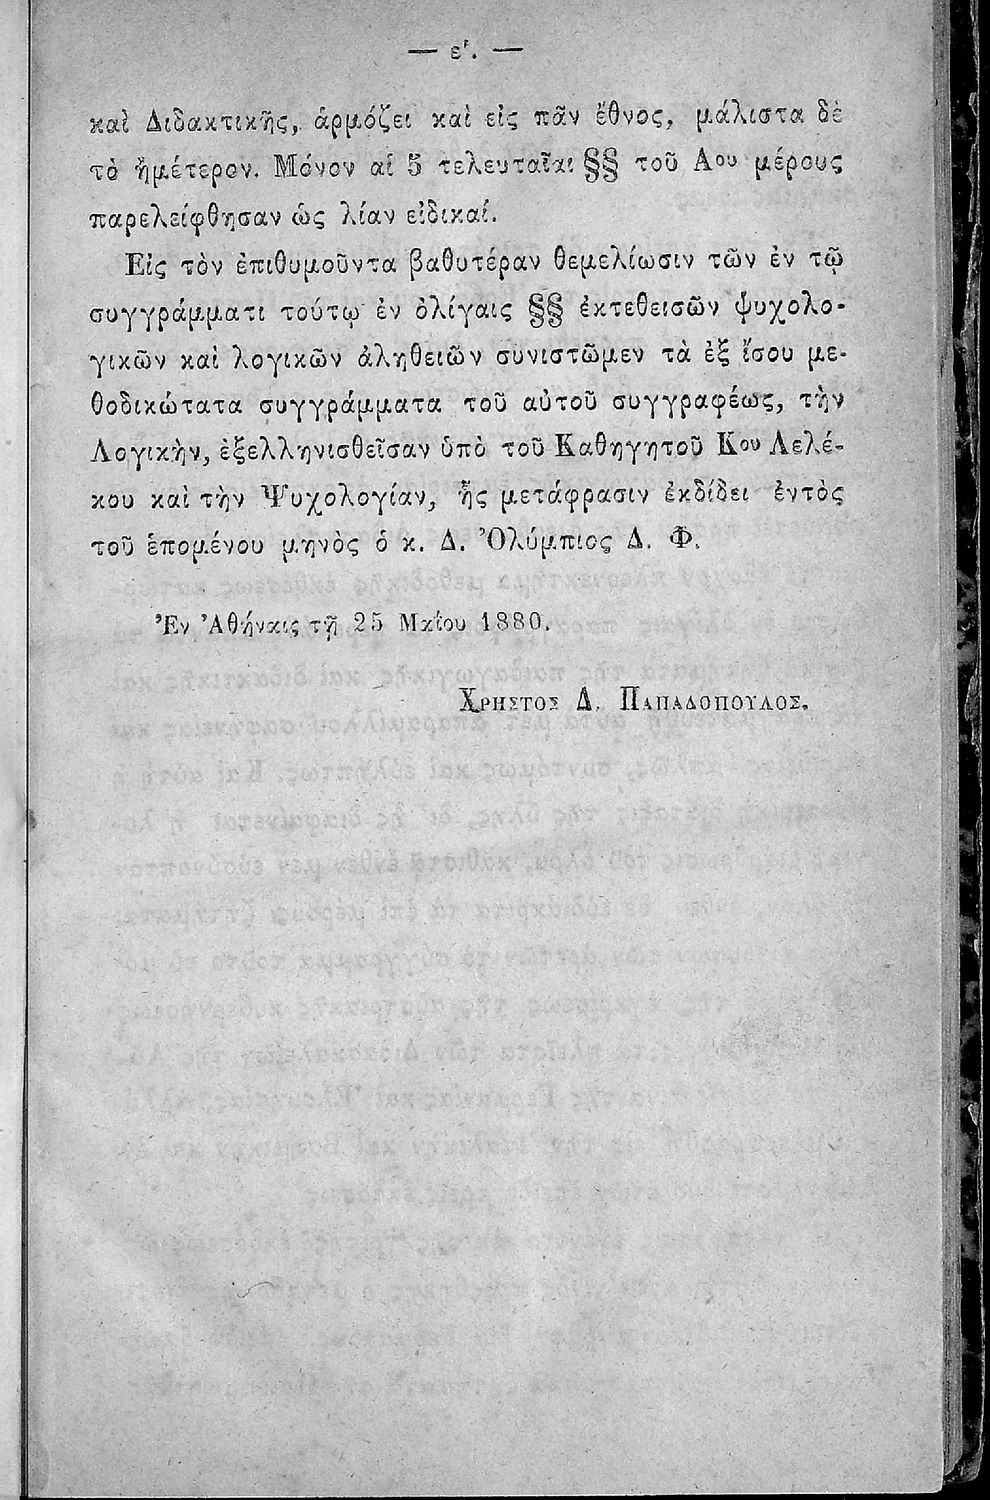 — ε'. —
καὶ Διδακτικῆς, ἁρμόζει καὶ εἰς πᾶν ἔθνος, μάλιστα δὲ
τὸ ἡμέτερον. Μόνον αἱ 5 τελευταῖαι §§ τοῦ Αου μέρους
παρελείφθησαν ὡς λίαν εἰδικαί.
Εἰς τὸν ἐπιθυμοῦντα βαθυτέραν θεμελίωσιν τῶν ἐν τῷ
συγγράμματι τούτῳ ἐν ὀλίγαις §§ ἐκτεθεισῶν ψυχολο-
γικῶν καὶ λογικῶν ἀληθειῶν συνιστῶμεν τὰ ἐξ ἴσου με-
θοδικώτατα συγγράμματα τοῦ αὐτοῦ συγγραφέως, τὴν
Λογικὴν, ἐξελληνισθεῖσαν ὑπὸ τοῦ Καθηγητοῦ Κου Λελέ-
κου καὶ τὴν Ψυχολογίαν, ἧς μετάφρασιν ἐκδίδει ἐντὸς
τοῦ ἑπομένου μηνὸς ὁ κ. Δ. Ὀλύμπιος Δ. Φ.
Ἐν Ἀθήναις τῇ 25 Μαΐου 1880.
ΧΡΗΣΤΟΣ Δ. ΠΑΠΑΔΟΠΟΥΛΟΣ.